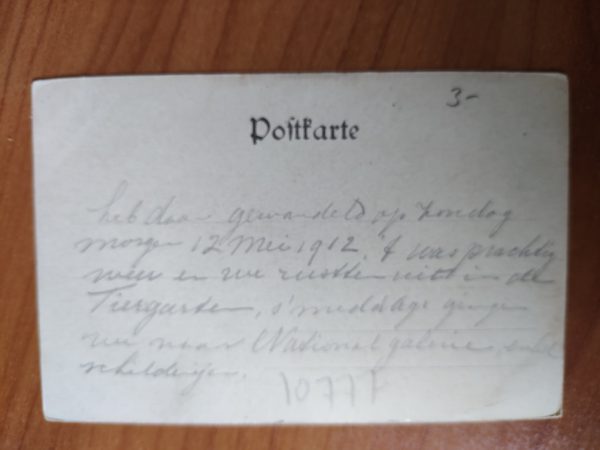 3-
Poſtkarte
heb daar gewandeld op Zondag
morgen 12 Mei 1912. 't was prachtig
weer en we rustten uit in de
Tiergarten, s'middags gingen
we naar National galerie,
schilderijen.
10777